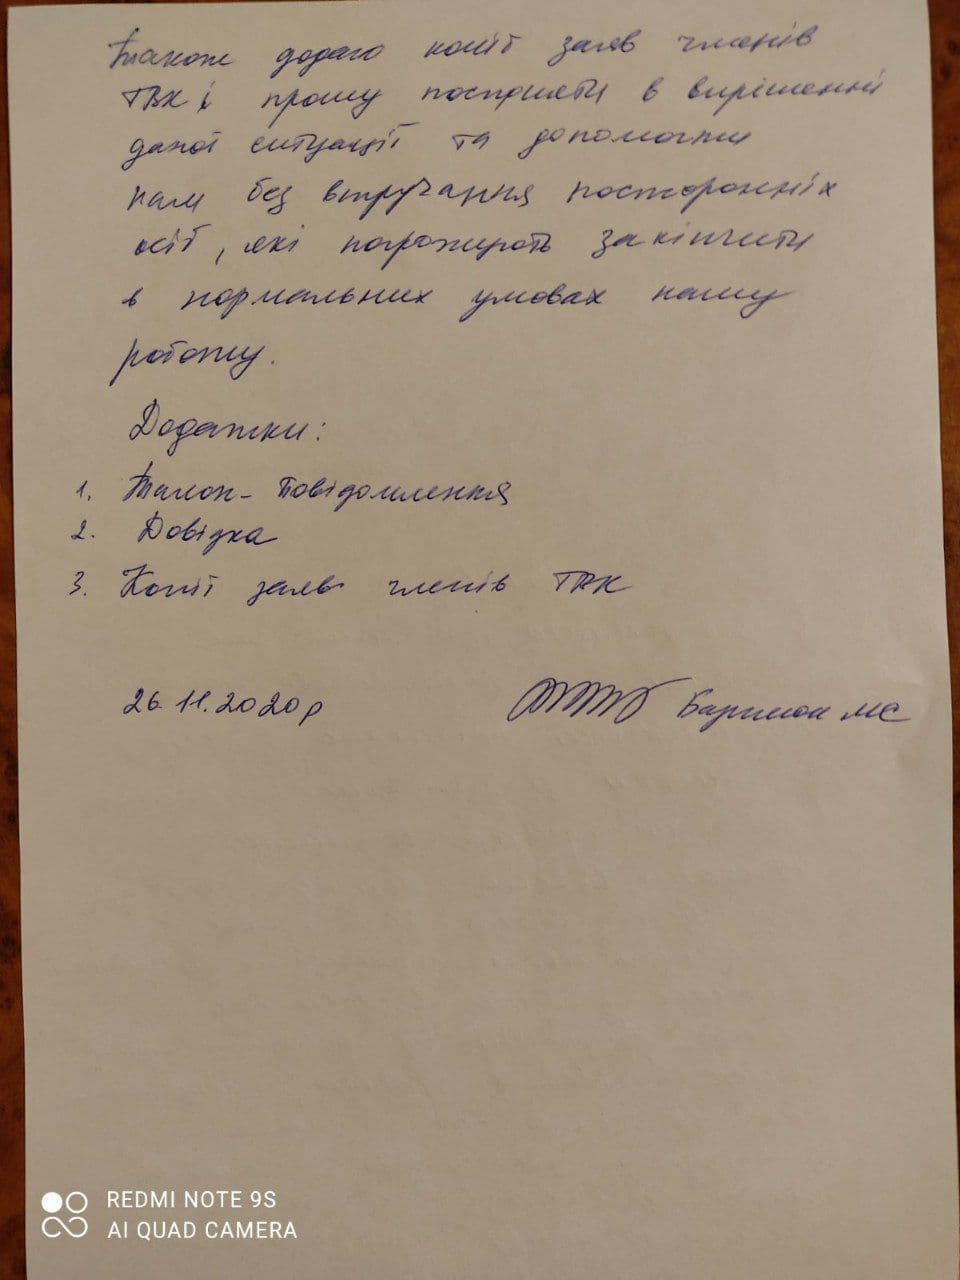 Також додаю копії заяв членів
ТВК і прошу посприяти в вирішенні
даної ситуації та допомогти
нам без втручання посторонніх
осіб, які погрожують закінчити
в нормальних умовах нашу
роботу.
Додатки:
1. Талон-повідомлення
2. Довідка
3. Копії заяв членів ТВК
26.11.2020р МС
REDMI NOTE 9S
AI QUAD CAMERA